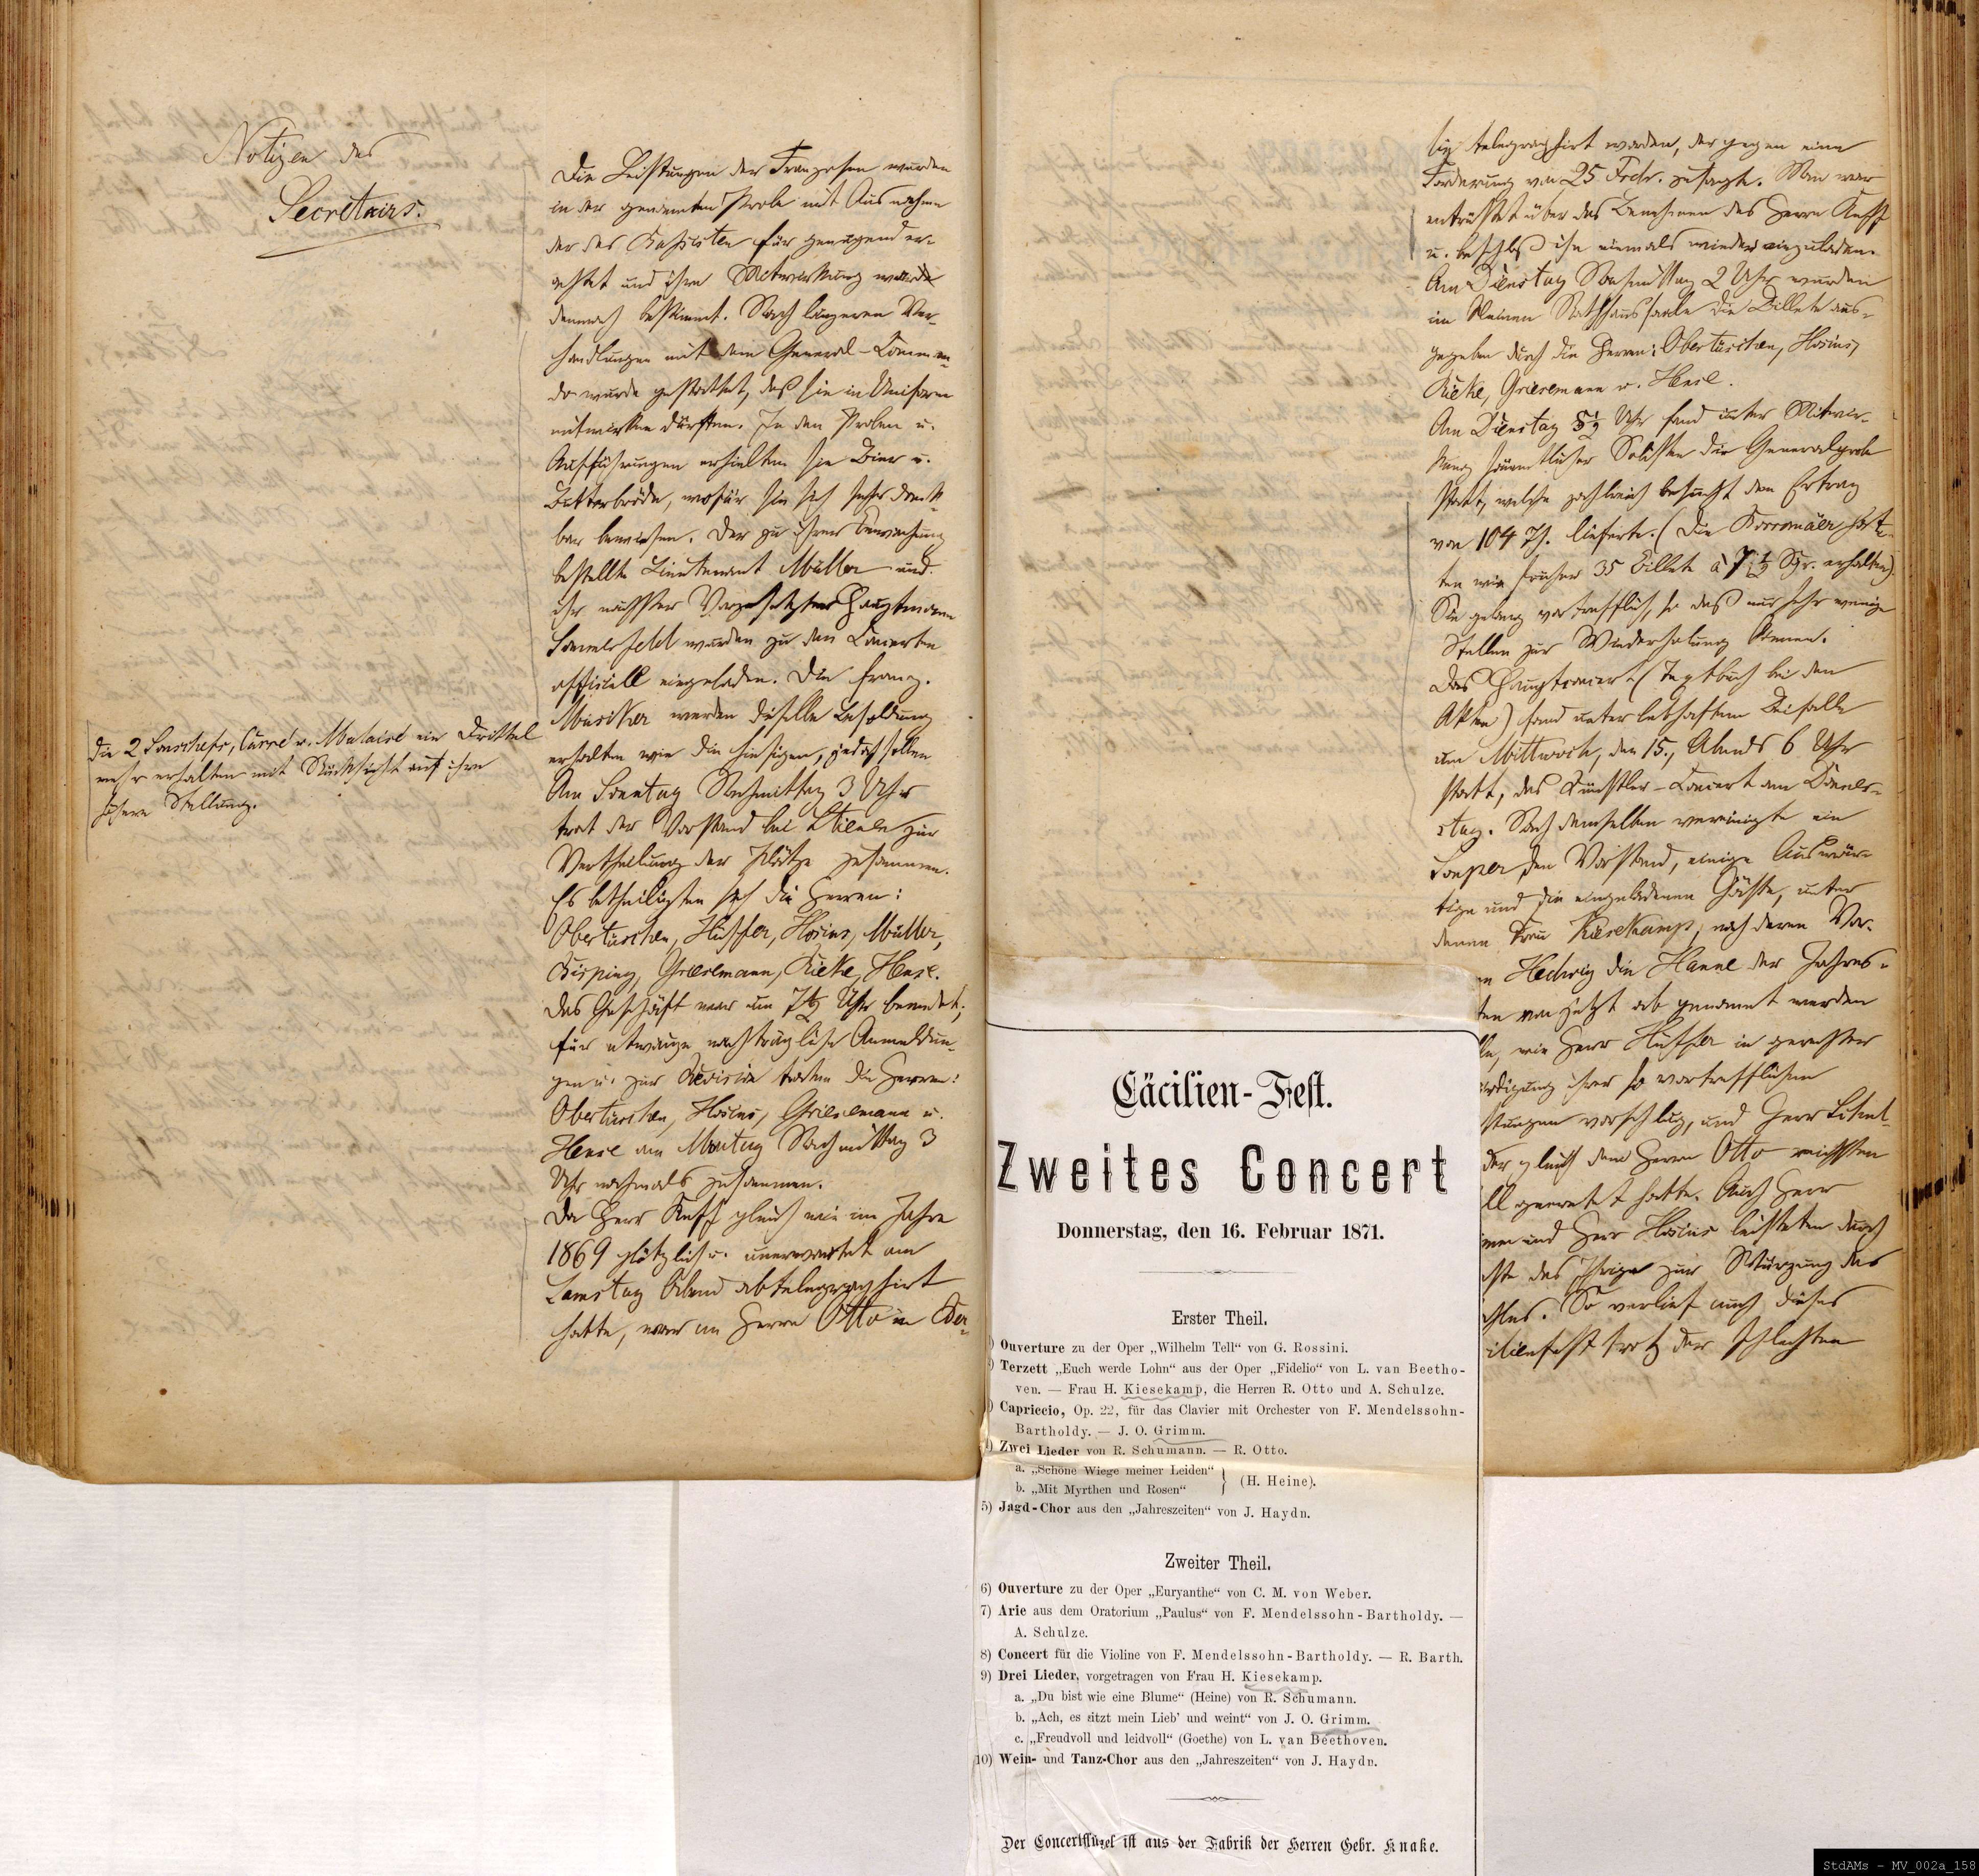 Notizen des
Secretairs.
Die Leistungen der Franzosen wurden
in der genannten Probe mit Ausnahme
der des Bassisten für genügend er-
achtet und ihre Mitwirkung wurde
demnach bestimmt. Nach längeren Ver-
handlungen mit dem General-Comman-
do wurde gestattet, daß sie in Uniform
mitwirken dürften. In den Proben u.
Aufführungen erhielten sie Bier u.
Butterbröde, wofür sie sich sehr dank-
bar bewiesen. Der zu ihrer Bewachung
bestellte Lieutenant Müller und
ihr nächster Vorgesetzter Hauptmann
wurden zu den Concerten
officiell eingeladen. Die franz.
Musiker werden dieselbe Besoldung
erhalten wie die hiesigen, jedoch sollen
die 2 Souschefs, Carré u. Malaisé ein Drittel
mehr erhalten mit Rücksicht auf ihre
höhere Stellung.
Am Sonntag Nachmittag 3 Uhr
trat der Vorstand bei Stienen zur
Vertheilung der Plätze zusammen.
Es betheiligten sich die Herren:
Obertüschen, Hüffer, Hosius, Müller,
Kisping, Grieselmann, Rieke, Hense.
Das Geschäft war um 7½ Uhr beendet;
für etwaige nachträgliche Anmeldun-
gen u. zur Revision traten die Herren:
Obertüschen, Hosius, Grieselmann u.
Hense am Montag Nachmittag 3
Uhr nochmals zusammen.
Da Herr Ruff gleich wie im Jahre
1869 plötzlich u. unerwartet am
Samstag Abend abtelegraphirt
hatte, war an Herrn Otto in Ber-
lin telegraphirt worden, der gegen eine
Forderung von 25 Frdr. zusagte. Man war
entrüstet über das Benehmen des Herrn Ruff
u. beschloß ihn niemals wieder einzuladen.
Am Dienstag Nachmittag 2 Uhr wurden
im kleinen Rathhaussaale die Billete aus-
gegeben durch die Herren: Obertüschen, Hosius,
Rieke, Grieselmann u. Hense.
Am Dienstag 5½ Uhr fand unter Mitwir-
kung sämmtlicher Solisten die Generalprobe
statt, welche zahlreich besucht den Ertrag
von 104 Th. lieferte. (Die Borromäer hat-
ten wie früher 35 Billete à 7½ Sgr. erhalten)
Sie gelang vortrefflich, so daß nur sehr wenige
Stellen zur Wiederholung kamen.
Das Hauptconcert (Textbuch bei den
Akten) fand unter lebhaftem Beifalle
am Mittwoch, den 15., Abends 6 Uhr
statt, das Künstler-Concert am Donners-
tag. Nach demselben vereinigte ein
Souper den Vorstand, einige Auswär-
tige und die eingeladenen Gäste, unter
denen Frau Kiesekamp, nach deren Vor-
n Hedwig die Hanne der Jahres-
ten von jetzt ab genannt werden
lle, wie Herr Hüffer in gerechter
rdigung ihrer so vortrefflichen
stungen vorschlug, und Herr
der gleich dem Herrn Otto
ll geerntet hatte. Auch Herr
mm und Herr Hosius leisteten durch
ste das Ihrige zur Würzung des
hles. So verlief auch dieses
cilienfest trotz der schlechten
Cäcilien-Fest.
Zweites Concert
Donnerstag, den 16. Februar 1871.
Erster Theil.
) Ouverture zu der Oper „Wilhelm Tell“ von G. Rossini.
) Terzett „Euch werde Lohn“ aus der Oper „Fidelio“ von L. van Beetho-
ven. — Frau H. Kiesekamp, die Herren R. Otto und A. Schulze.
) Capriccio, Op. 22, für das Clavier mit Orchester von F. Mendelssohn-
Bartholdy. — J. O. Grimm.
4) Zwei Lieder von R. Schumann. — R. Otto.
a. „Schöne Wiege meiner Leiden“
b. „Mit Myrthen und Rosen“ } (H. Heine).
5) Jagd-Chor aus den „Jahreszeiten“ von J. Haydn.
Zweiter Theil.
6) Ouverture zu der Oper „Euryanthe“ von C. M. von Weber.
7) Arie aus dem Oratorium „Paulus“ von F. Mendelssohn-Bartholdy. —
A. Schulze.
8) Concert für die Violine von F. Mendelssohn-Bartholdy. — R. Barth.
9) Drei Lieder, vorgetragen von Frau H. Kiesekamp.
a. „Du bist wie eine Blume“ (Heine) von R. Schumann.
b. „Ach, es sitzt mein Lieb’ und weint“ von J. O. Grimm.
c. „Freudvoll und leidvoll“ (Goethe) von L. van Beethoven.
10) Wein- und Tanz-Chor aus den „Jahreszeiten“ von J. Haydn.
Der Concertflügel ist aus der Fabrik der Herren Gebr. Knake.
StdAMs - MV_002a_158